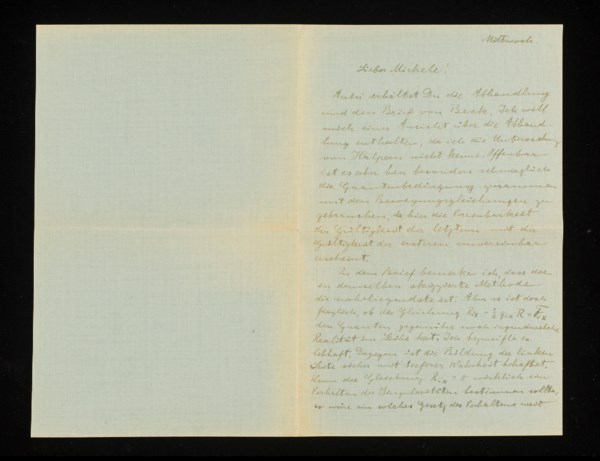 Mittwoch.
Lieber Michele!
Anbei erhältst Du die Abhandlung
und den Brief von Beck. Ich will
mich einer Ansicht über die Abhand-
lung enthalten, da ich die Untersuchung
von Halpern nicht kenne. Offenbar
ist es aber hier besonders
die Quantenbedingung zusammen
mit den Bewegungsgleichungen zu
gebrauchen, da hier die
der Gültigkeit der letzteren mit der
Gültigkeit der ersteren unvereinbar
erscheint.
Zu dem Brief bemerke ich, dass die
in demselben skizzierte Methode
die naheliegendste ist. Aber es ist doch
fraglich, ob der Gleichung Rik - ½ gik R = Tik
den Quanten gegenüber noch irgendwelche
Realität im hat. Ich bezweifle es
lebhaft. Dagegen ist die Bildung der linken
Seite sicher mit tieferer Wahrheit behaftet.
Wenn die Gleichung Rik = 0 wirklich das
Verhalten der Singularitäten bestimmen sollte,
so wäre ein solches Gesetz des Verhaltens weit